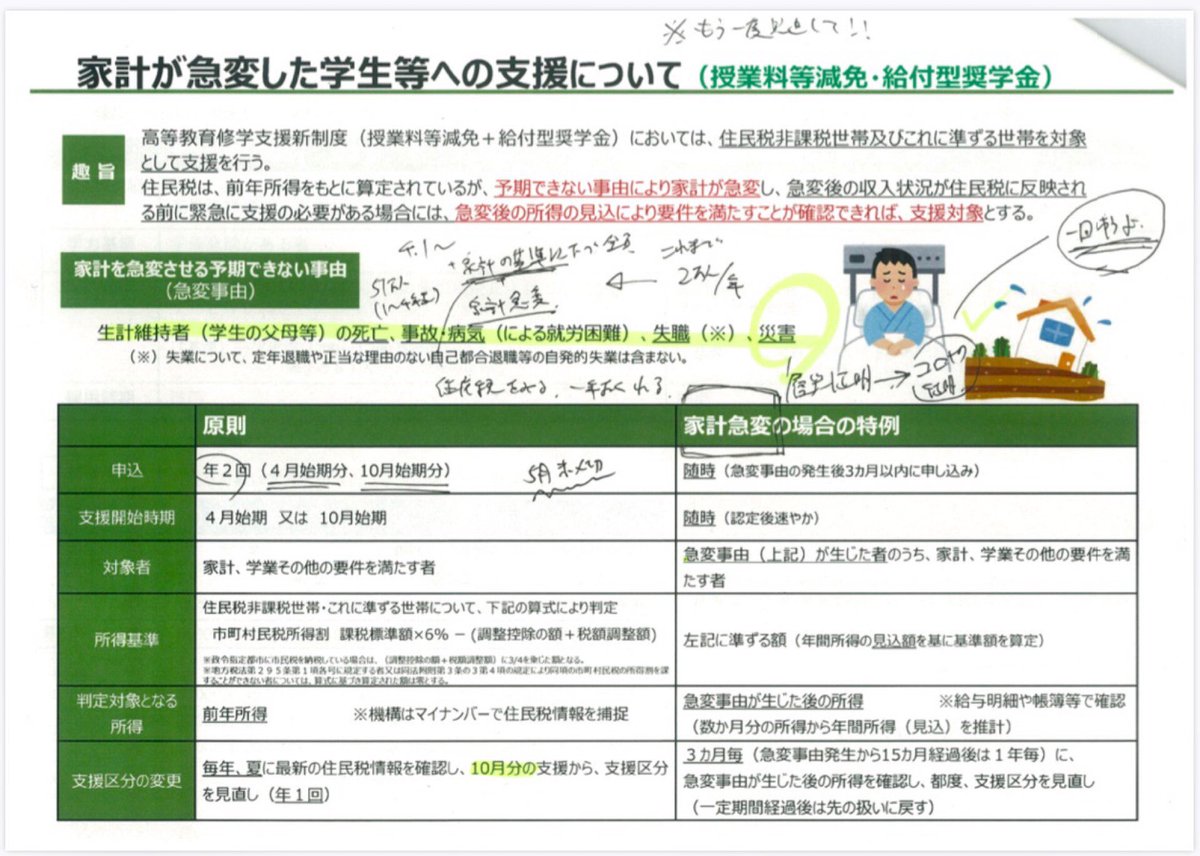 ※もう一度見直して!!
家計が急変した学生等への支援について（授業料等減免・給付型奨学金）
趣旨
高等教育修学支援新制度（授業料等減免＋給付型奨学金）においては、住民税非課税世帯及びこれに準ずる世帯を対象
として支援を行う。
住民税は、前年所得をもとに算定されているが、予期できない事由により家計が急変し、急変後の収入状況が住民税に反映され
る前に緊急に支援の必要がある場合には、急変後の所得の見込により要件を満たすことが確認できれば、支援対象とする。
家計を急変させる予期できない事由
（急変事由）
4.1～
これまで
家計急変
生計維持者（学生の父母等）の死亡、事故・病気（による就労困難）、失職（※）、災害
（※）失業について、定年退職や正当な理由のない自己都合退職等の自発的失業は含まない。
原則
家計急変の場合の特例
申込
年２回（４月始期分、10月始期分）
随時（急変事由の発生後3カ月以内に申し込み）
支援開始時期
４月始期 又は 10月始期
随時（認定後速やか）
対象者
家計、学業その他の要件を満たす者
急変事由（上記）が生じた者のうち、家計、学業その他の要件を満
たす者
所得基準
住民税非課税世帯・これに準ずる世帯について、下記の算式により判定
市町村民税所得割 課税標準額×6% －（調整控除の額＋税額調整額）
※政令指定都市に市民税を納税している場合は、（調整控除の額＋税額調整額）に3/4を乗じた額となる。
※地方税法第２９５条第１項各号に規定する者又は同法附則第３条の３第４項の規定により同項の市町村民税の所得割を課
することができない者については、算式に基づき算定された額は零とする。
左記に準ずる額（年間所得の見込額を基に基準額を算定）
判定対象となる
所得
前年所得 ※機構はマイナンバーで住民税情報を捕捉
急変事由が生じた後の所得 ※給与明細や帳簿等で確認
（数か月分の所得から年間所得（見込）を推計）
支援区分の変更
毎年、夏に最新の住民税情報を確認し、10月分の支援から、支援区分
を見直し（年１回）
３カ月毎（急変事由発生から15カ月経過後は１年毎）に、
急変事由が生じた後の所得を確認し、都度、支援区分を見直し
（一定期間経過後は先の扱いに戻す）